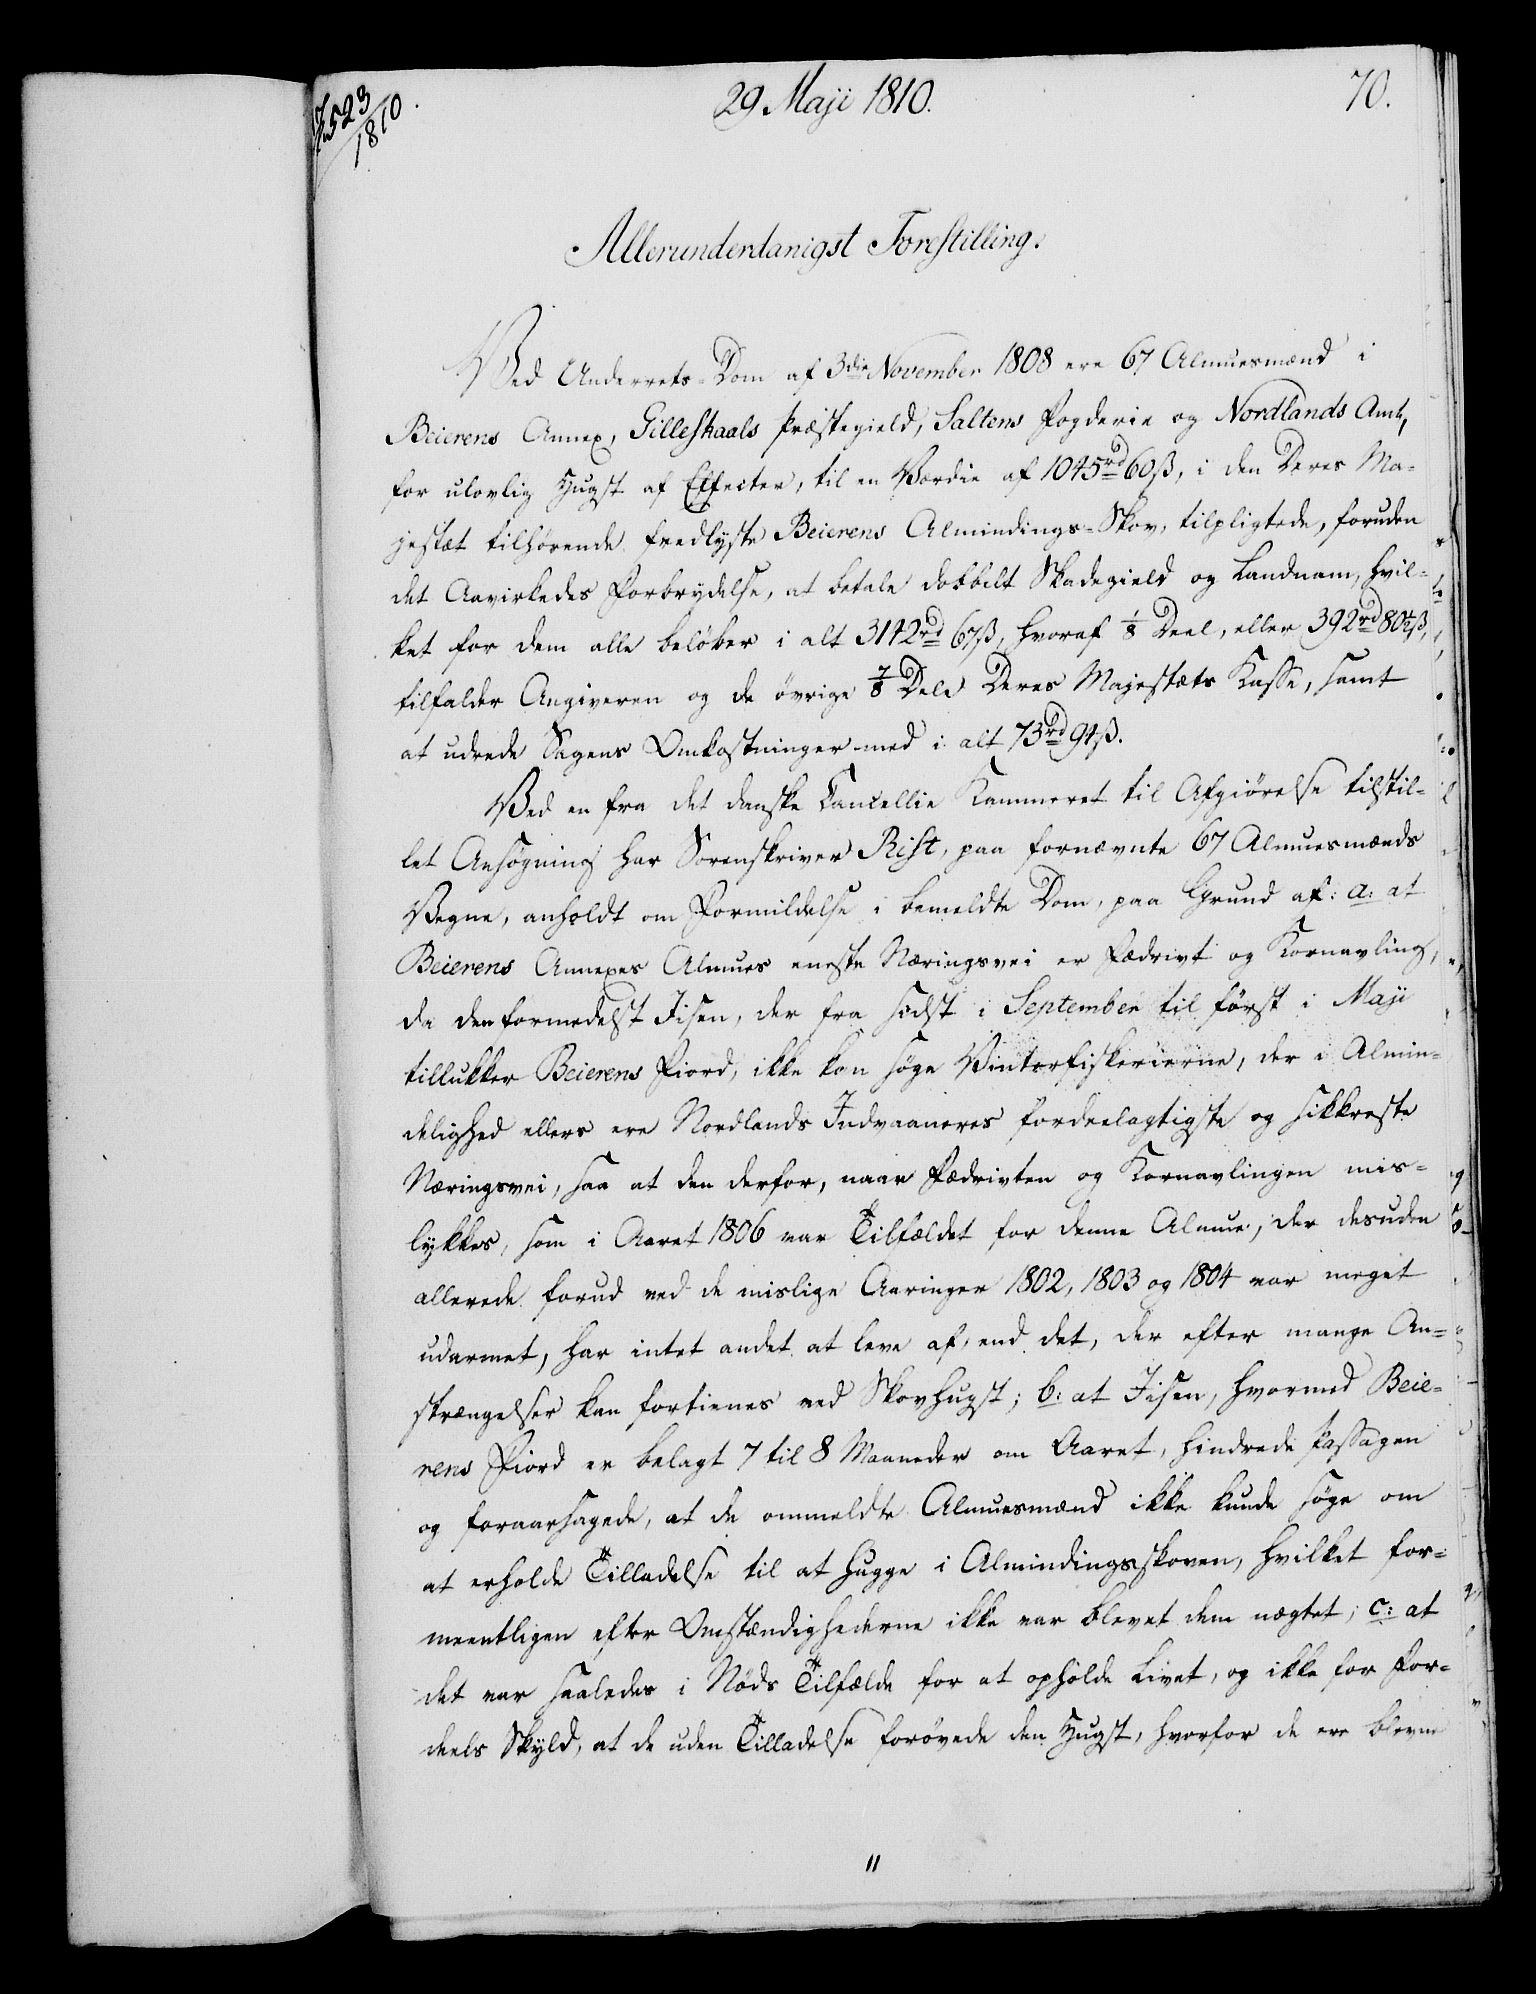 523/1810.
29 Maji 1810.
70.
Allerunderdanigst Forestilling.
Ved Underrets-Dom af 3die November 1808 ere 67 Almuesmænd i
Beierens Annex, Gilleskaals Præstegield, Saltens Fogderie og Nordlands Amt,
for ulovlig Hugst af Effecter, til en Værdie af 1045rd 60ß, i den Deres Ma-
jestæt tilhørende fredlyste Beierens Almindings-Skov, tilpligtede, foruden
det Aavirkedes Forbrydelse, at betale dobbelt Skadegield og Landnam, hvil-
ket for dem alle beløber i alt 3142rd 67ß, hvoraf 1/8 Deel, eller 392rd 80½ß,
tilfalder Angiveren og de øvrige 7/8 Dele Deres Majestæts Kasse, samt
at udrede Sagens Omkostninger med i alt 73rd 94ß.
Ved en fra det danske Cancellie Kammeret til Afgiørelse tilstil-
let Ansøgning har Sorenskriver Rist, paa fornævnte 67 Almuesmænds
Vegne, anholdt om Formildelse i bemeldte Dom, paa Grund af: a: at
Beierens Annexes Almues eneste Næringsvei er Fædrivt og Kornavling,
da den formedelst Jisen, der fra sidst i September til først i Maji
tillukker Beierens Fiord, ikke kan søge Vinterfiskerierne, der i Almin-
delighed ellers ere Nordlands Indvaaneres fordeelagtigste og sikkreste
Næringsvei, saa at den derfor, naar Fædrivten og Kornavlingen mis-
lykkes, som i Aaret 1806 var Tilfældet for denne Almue, der desuden
allerede forud ved de mislige Aaringer 1802, 1803 og 1804 var meget
udarmet, har intet andet at leve af, end det, der efter mange An-
strængelser kan fortienes ved Skovhugst; b: at Jisen, hvormed Beie-
rens Fiord er belagt 7 til 8 Maaneder om Aaret, hindrede Passagen
og foraarsagede, at de ommeldte Almuesmænd ikke kunde søge om
at erholde Tilladelse til at hugge i Almindingsskoven, hvilket for-
meentligen efter Omstændighederne ikke var blevet dem nægtet; c: at
det var saaledes i Nøds Tilfælde for at opholde Livet, og ikke for For-
deels Skyld, at de uden Tilladelse forøvede den Hugst, hvorfor de ere blevne